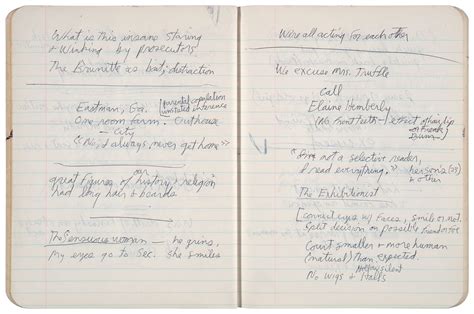 What is this insane staring
& winking by prosecutors
The Brunette as bait; distraction
Eastman, Ga.
parental capitulation
One room farm. Outhouse
City
"No, I always never get home"
our
great figures of history & religion
had long hair & beards
The Sensuous woman — he grins,
My eyes go to Sec. She smiles
We're all acting for each other
We excuse Mrs. Truffle
Call
Elaine Hemberly
(No front teeth - effect of hag lip
or Freak
not a selective reader,
I read everything."
& other
The Exhibitionist
[connect eyes w/ faces, smile or not.
Split decision on possible
Court smaller & more human
(natural) than expected.
silent
No wigs &